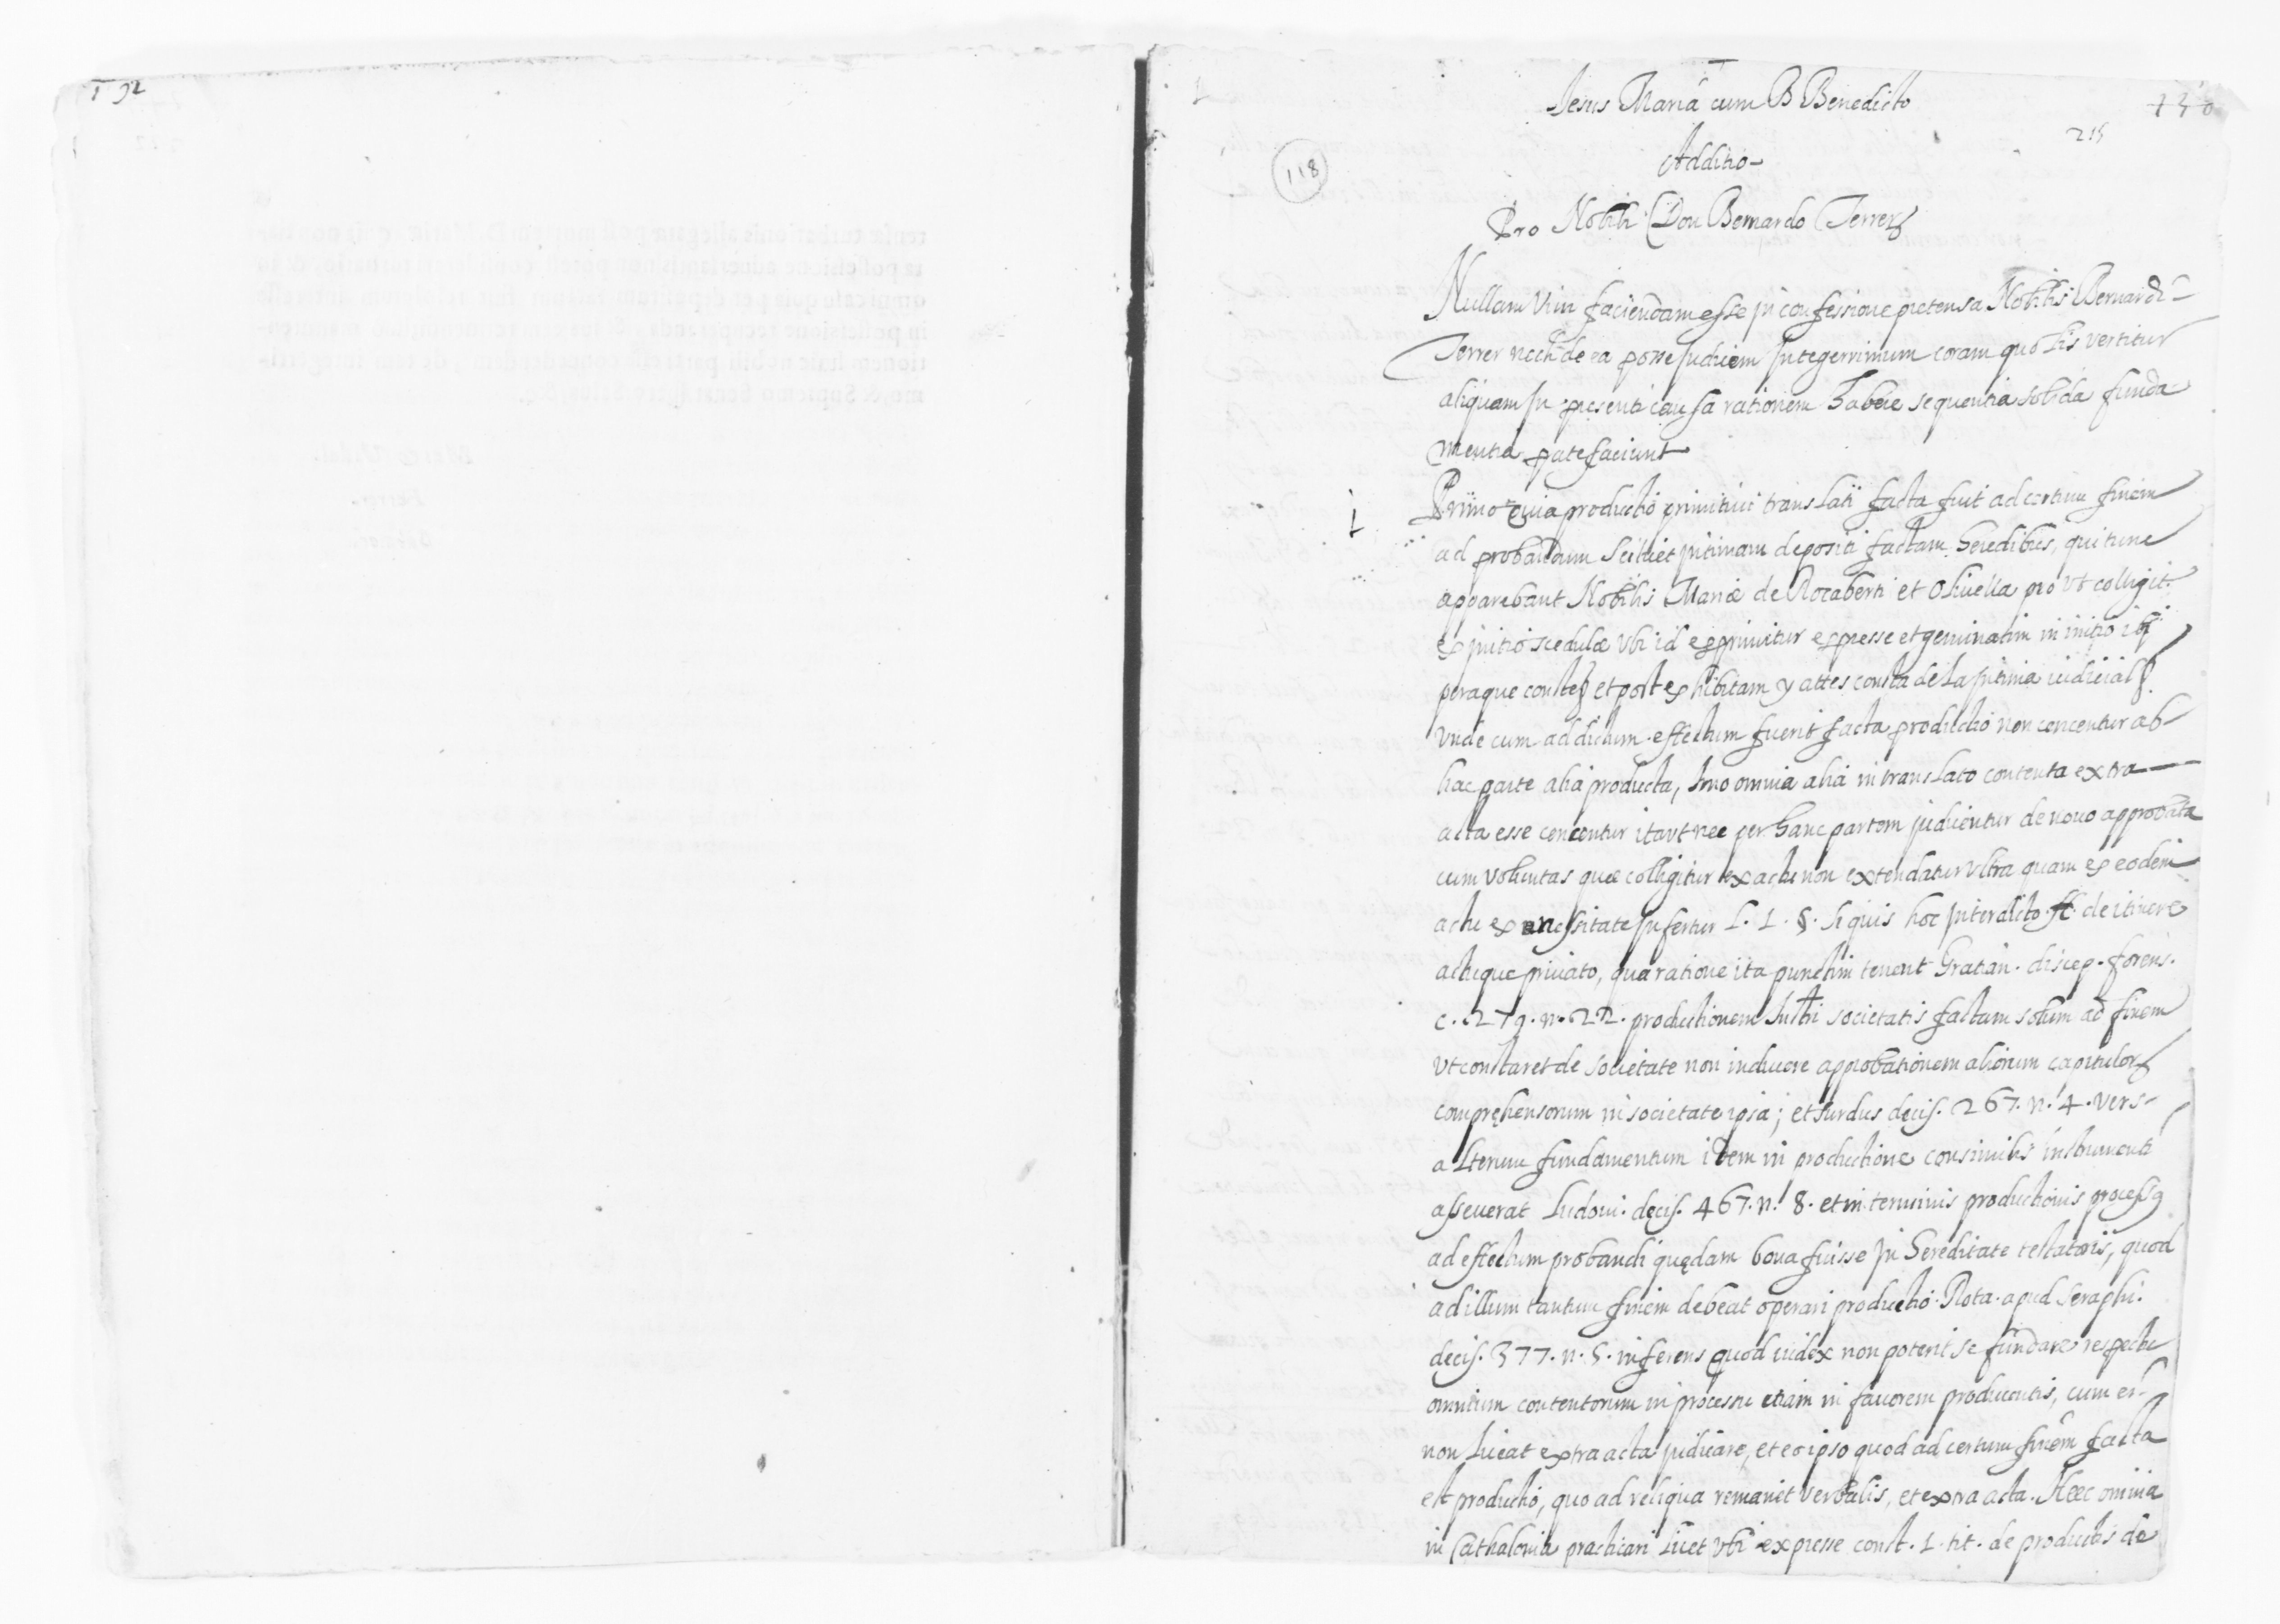 Jesus Maria cum B Benedicto
150
215
118
Additio
Pro Nobili Don Bernardo Terrer
Nullam vim faciendam esse in confessione pretensa Nobilis Bernardi
Terrer nech de ea posse judicem integerrimum coram quo lis vertitur
aliquam in presenti causa rationem habere sequentia solida funda
menta patefaciunt
1
Primo quia productio primitivi translati facta fuit ad certum finem
ad probandum scilicet intimam depositi factam heredibus, qui tunc
apparebant Nobilis Mariæ de Rocaberti et Olivella pro ut colligit.
ex initio scedulæ ubi id exprimitur expresse et geminatim in initio ibi
peraque conste et post exhibitam y attes consta de la intima iudicial
Unde cum ad dictum effectum fuerit facta productio non concentur ab
hac parte alia producta, imo omnia alia in translato contenta extra
acta esse concentur itaut nec per hanc partem judicentur de novo approbata
cum voluntas quæ colligitur ex actu non extendatur ultra quam ex eodem
actu ex necessitate infertur l. 1. §. si quis hoc interdicto ff. de itinere
actuque privato, qua ratione ita punctim tenent Gratian. discep. forens.
c. 279. n. 22. productionem Instri societatis factam solum ad finem
ut constaret de societate non inducere approbationem aliorum capitulor
comprehensorum in societate ipsa; et surdus decis. 267. n. 4. vers
alterum fundamentum idem in productione consimilis instrumenti
asseverat Ludovi. decis. 467. n. 8. et in terminis productionis process
ad effectum probandi quędam bona fuisse in hereditate testatoris, quod
ad illum tantum finem debeat operari productio. Rota. apud Seraphi.
decis. 377. n. 5. inferens quod iudex non poterit se fundare respectu
omnium contentorum in processu etiam in favorem producentis, cum ei
non liceat extra acta judicare, et eo ipso quod ad certum finem facta
est productio, quo ad reliqua remanet verbalis, et extra acta. Hæc omnia
in Cathalonia practicari licet ubi expresse const. 1. tit. de productis de